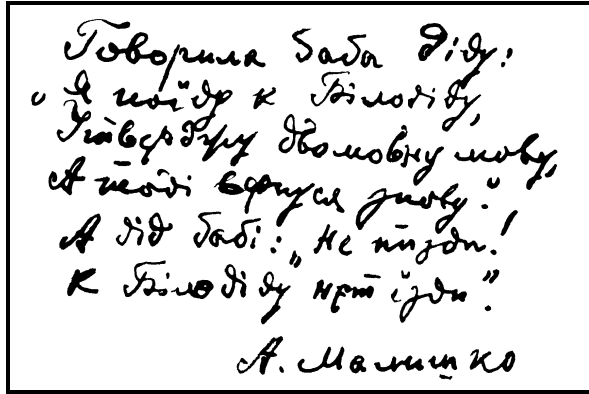 Говорила баба діду:
„Я поїду к Білодіду,
Утверджу двомовну мову,
А тоді вернуся знову."
А дід бабі: „Не пизди!
К Білодіду нєт їзди".
А. Малишко